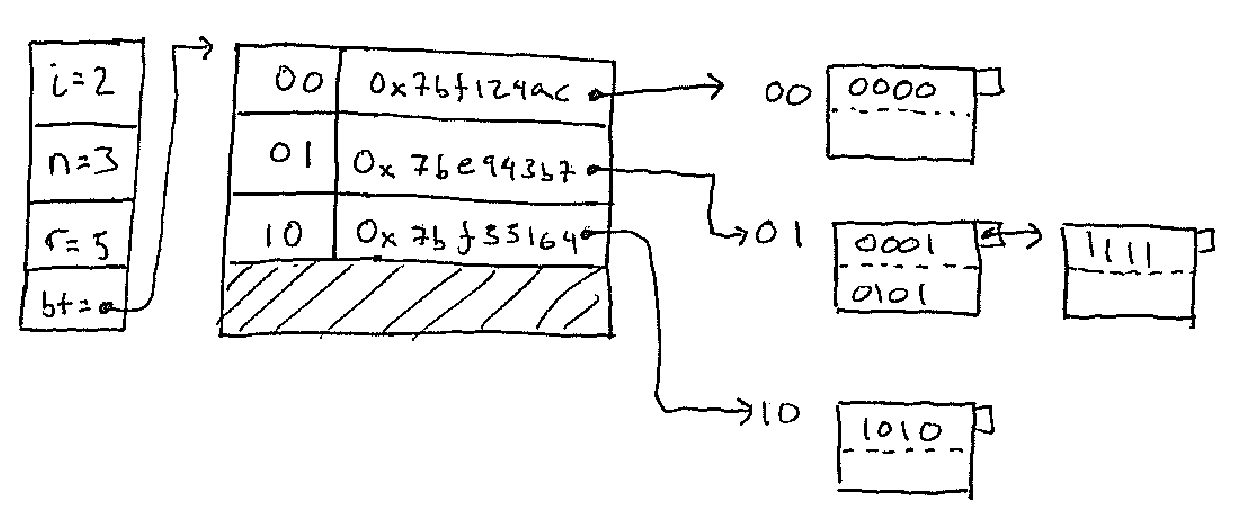 i=2
n=3
r=5
bt=
00 0x7bf124ac
01 0x7be943b7
10 0x7bf35164
00
0000
01
0001
0101
1111
10
1010